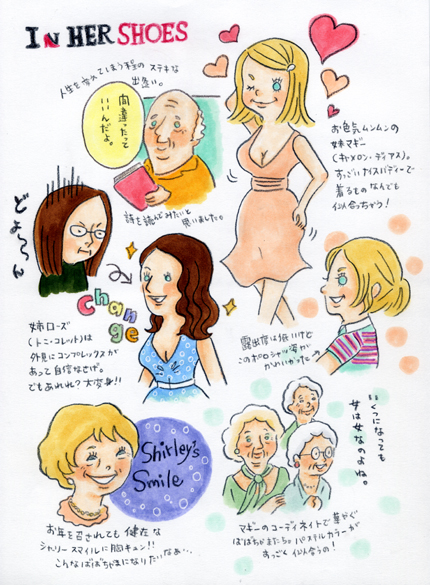 IN HER SHOES
人生を変えてしまう程の ステキな
出逢い。
間違ったって
いいんだよ。
詩を読んでみたいと
思いました。
お色気ムンムンの
妹マギー
(キャメロン・ディアス)。
すっごいナイスバディーで
着るものなんでも
似合っちゃう!
どよ〜〜ん
chan
ge
姉ローズ
(トニ・コレット)は
外見にコンプレックスが
あって自信なさげ。
でもあれれ?大変身!!
露出度は低いけど
このポロシャツ姿が
かわいかったー
Shirley's
Smile
いくつになっても
女は女なのよね。
お年を召されても 健在な
シャーリースマイルに胸キュン!!
こんなばばちゃまになりたいなぁ…
マギーのコーディネイトで華やぐ
ばばちゃまたち。パステルカラーが
すっごく似合うの!